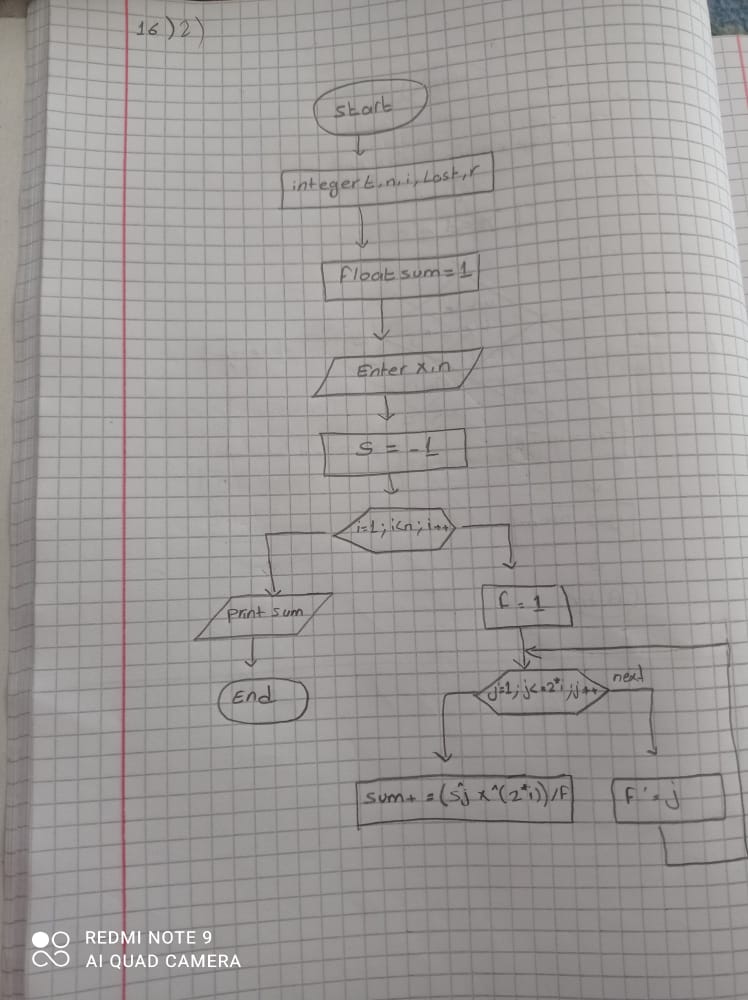 16)2)
Start
integer t,n,i, Lost,r
Float sum=1
Enter x,n
S = -1
i=1; i<n; i++
Print sum
F = 1
End
j=1; j<=2*i; j++
next
sum+ = (S^j x^(2*i))/F
F*=j
REDMI NOTE 9
AI QUAD CAMERA